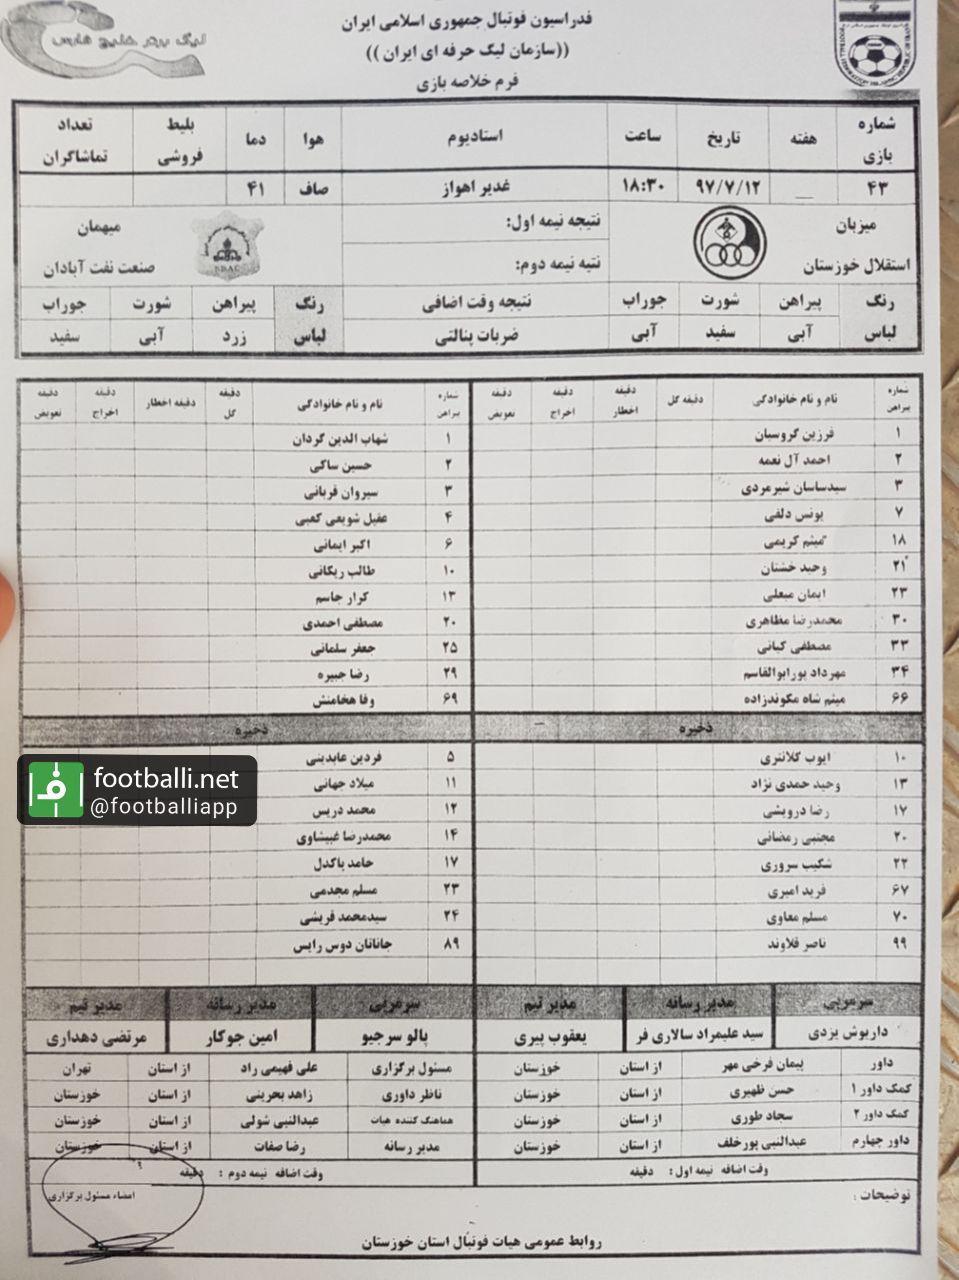 لیگ برتر خلیج فارس
فدراسیون فوتبال جمهوری اسلامی ایران
((سازمان لیگ حرفه ای ایران ))
فرم خلاصه بازی
شماره بازی هفته تاریخ ساعت استادیوم هوا دما بلیط فروشی تعداد تماشاگران
۴۳ __ ۹۷/۷/۱۲ ۱۸:۳۰ غدیر اهواز صاف ۴۱
میزبان نتیجه نیمه اول: میهمان
استقلال خوزستان نتیه نیمه دوم: صنعت نفت آبادان
رنگ پیراهن شورت جوراب نتیجه وقت اضافی رنگ پیراهن شورت جوراب
لباس آبی سفید آبی ضربات پنالتی لباس زرد آبی سفید
شماره پیراهن نام و نام خانوادگی دقیقه گل دقیقه اخطار دقیقه اخراج دقیقه تعویض شماره پیراهن نام و نام خانوادگی دقیقه گل دقیقه اخطار دقیقه اخراج دقیقه تعویض
۱ فرزین گروسیان ۱ شهاب الدین گردان
۲ احمد آل نعمه ۲ حسین ساکی
۳ سیدساسان شیرمردی ۳ سیروان قربانی
۷ یونس دلفی ۴ عقیل شویعی کعبی
۱۸ میثم کریمی ۶ اکبر ایمانی
۲۱ وحید خشتان ۱۰ طالب ریکانی
۲۳ ایمان مبعلی ۱۳ کرار جاسم
۳۰ محمدرضا مظاهری ۲۰ مصطفی احمدی
۳۳ مصطفی کیانی ۲۵ جعفر سلمانی
۳۴ مهرداد پورابوالقاسم ۲۹ رضا جبیره
۶۶ میثم شاه مکوندزاده ۶۹ وفا هخامنش
ذخیره ذخیره
۱۰ ایوب کلانتری ۵ فردین عابدینی
۱۳ وحید حمدی نژاد ۱۱ میلاد جهانی
۱۷ رضا درویشی ۱۲ محمد دریس
۲۰ مجتبی رمضانی ۱۴ محمدرضا غبیشاوی
۲۲ شکیب سروری ۱۷ حامد پاکدل
۶۷ فرید امیری ۲۳ مسلم مجدمی
۷۰ مسلم معاوی ۲۴ سیدمحمد قریشی
۹۹ ناصر قلاوند ۸۹ جاناتان دوس رایس
footballi.net
@footballiapp
سرمربی مدیر رسانه مدیر تیم سرمربی مدیر رسانه مدیر تیم
داریوش یزدی سید علیمراد سالاری فر یعقوب پیری پالو سرجیو امین جوکار مرتضی دهداری
داور پیمان فرخی مهر از استان خوزستان مسئول برگزاری علی فهیمی راد از استان تهران
کمک داور ۱ حسن ظهیری از استان خوزستان ناظر داوری زاهد بحرینی از استان خوزستان
کمک داور ۲ سجاد طوری از استان خوزستان هماهنگ کننده هیات عبدالنبی شولی از استان خوزستان
داور چهارم عبدالنبی پور خلف از استان خوزستان مدیر رسانه رضا صفات از استان خوزستان
وقت اضافه نیمه اول: دقیقه وقت اضافه نیمه دوم : دقیقه
توضیحات : امضاء مسئول برگزاری
روابط عمومی هیات فوتبال استان خوزستان